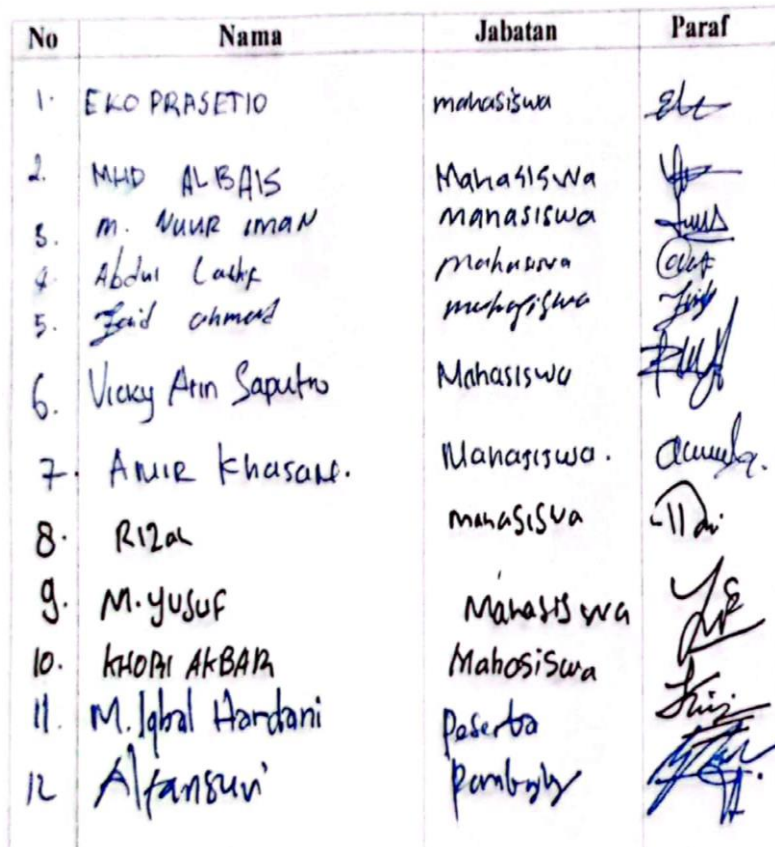 No Nama Jabatan Paraf
1. EKO PRASETIO mahasiswa
2. MHD ALBAIS Mahasiswa
3. M. NUUR IMAN mahasiswa
4. Abdul Latif mahasiswa
5. Zaid ahmad mahasiswa
6. Vicky Arin Saputro Mahasiswa
7. AMIR Khasane. Mahasiswa.
8. RIZAL mahasiswa
9. M. YUSUF Mahasiswa
10. KHORI AKBAR Mahasiswa
11. M. Iqbal Hardani peserta
12 Alfansuri